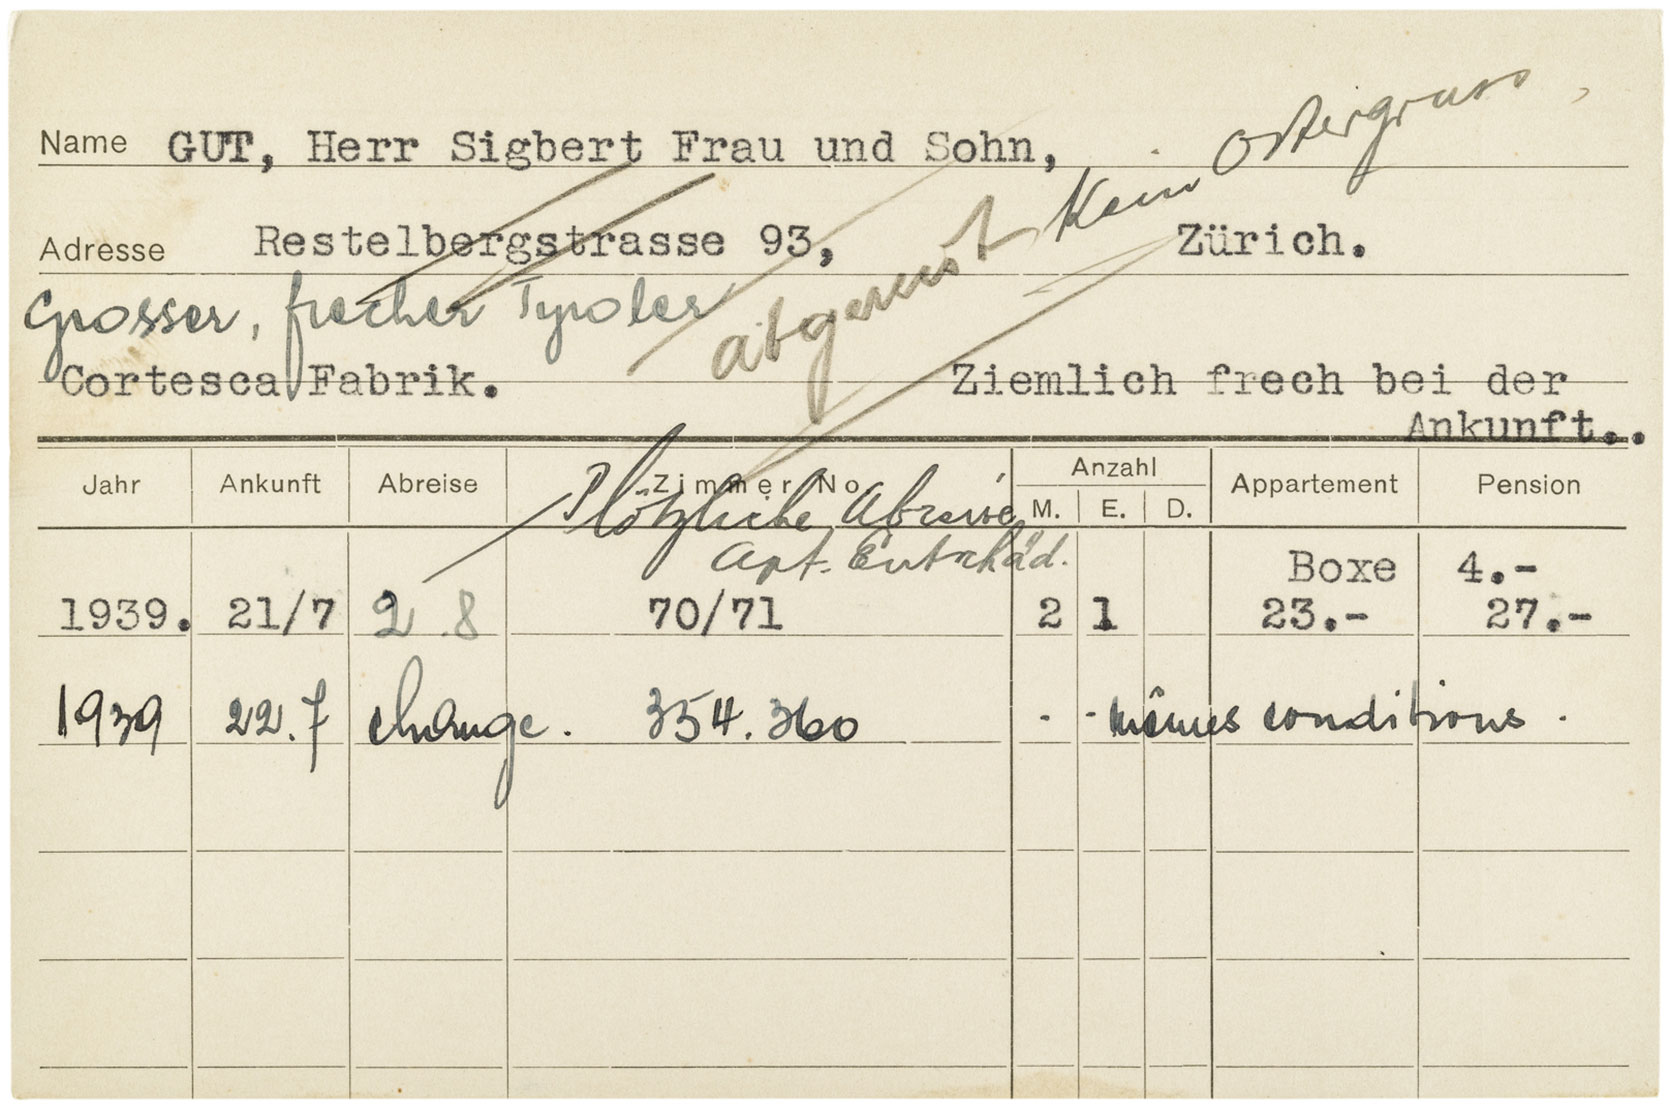 Kein Ostergruss,
Name GUT, Herr Sigbert Frau und Sohn,
Adresse Restelbergstrasse 93, Zürich.
abgereist
Grosser, frecher Tyroler
Cortesca Fabrik. Ziemlich frech bei der
Ankunft..
Jahr Ankunft Abreise Zimmer No. Anzahl Appartement Pension
M. E. D.
Plötzliche Abreise
Apt. Entschäd.
Boxe 4.-
1939. 21/7 2.8 70/71 2 1 23.- 27.-
1939 22.7 change. 354.360 - - mêmes conditions.